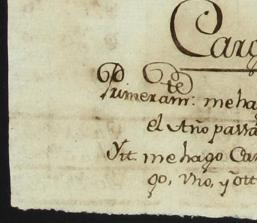 Carg
Primeram.te me hag
el Año passa
Yt. me hago Car
go, vno, y ott